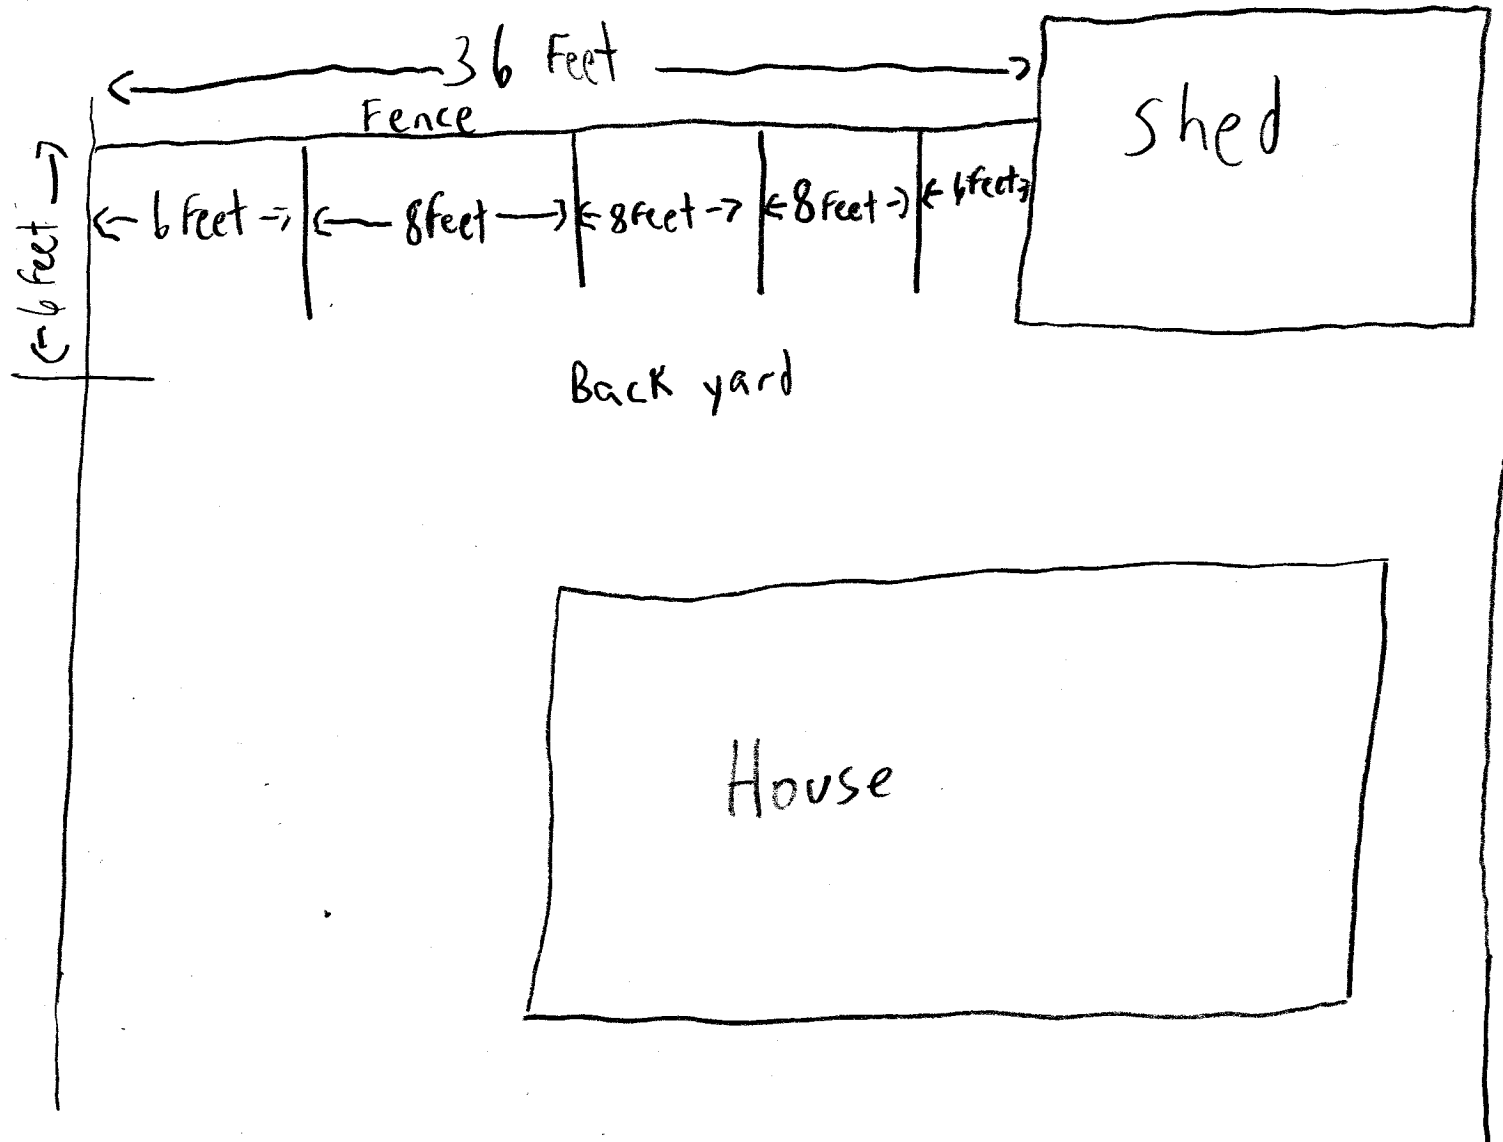 36 Feet
Fence
Shed
6 feet
6 Feet
8feet
8feet
8feet
6feet
Back yard
House